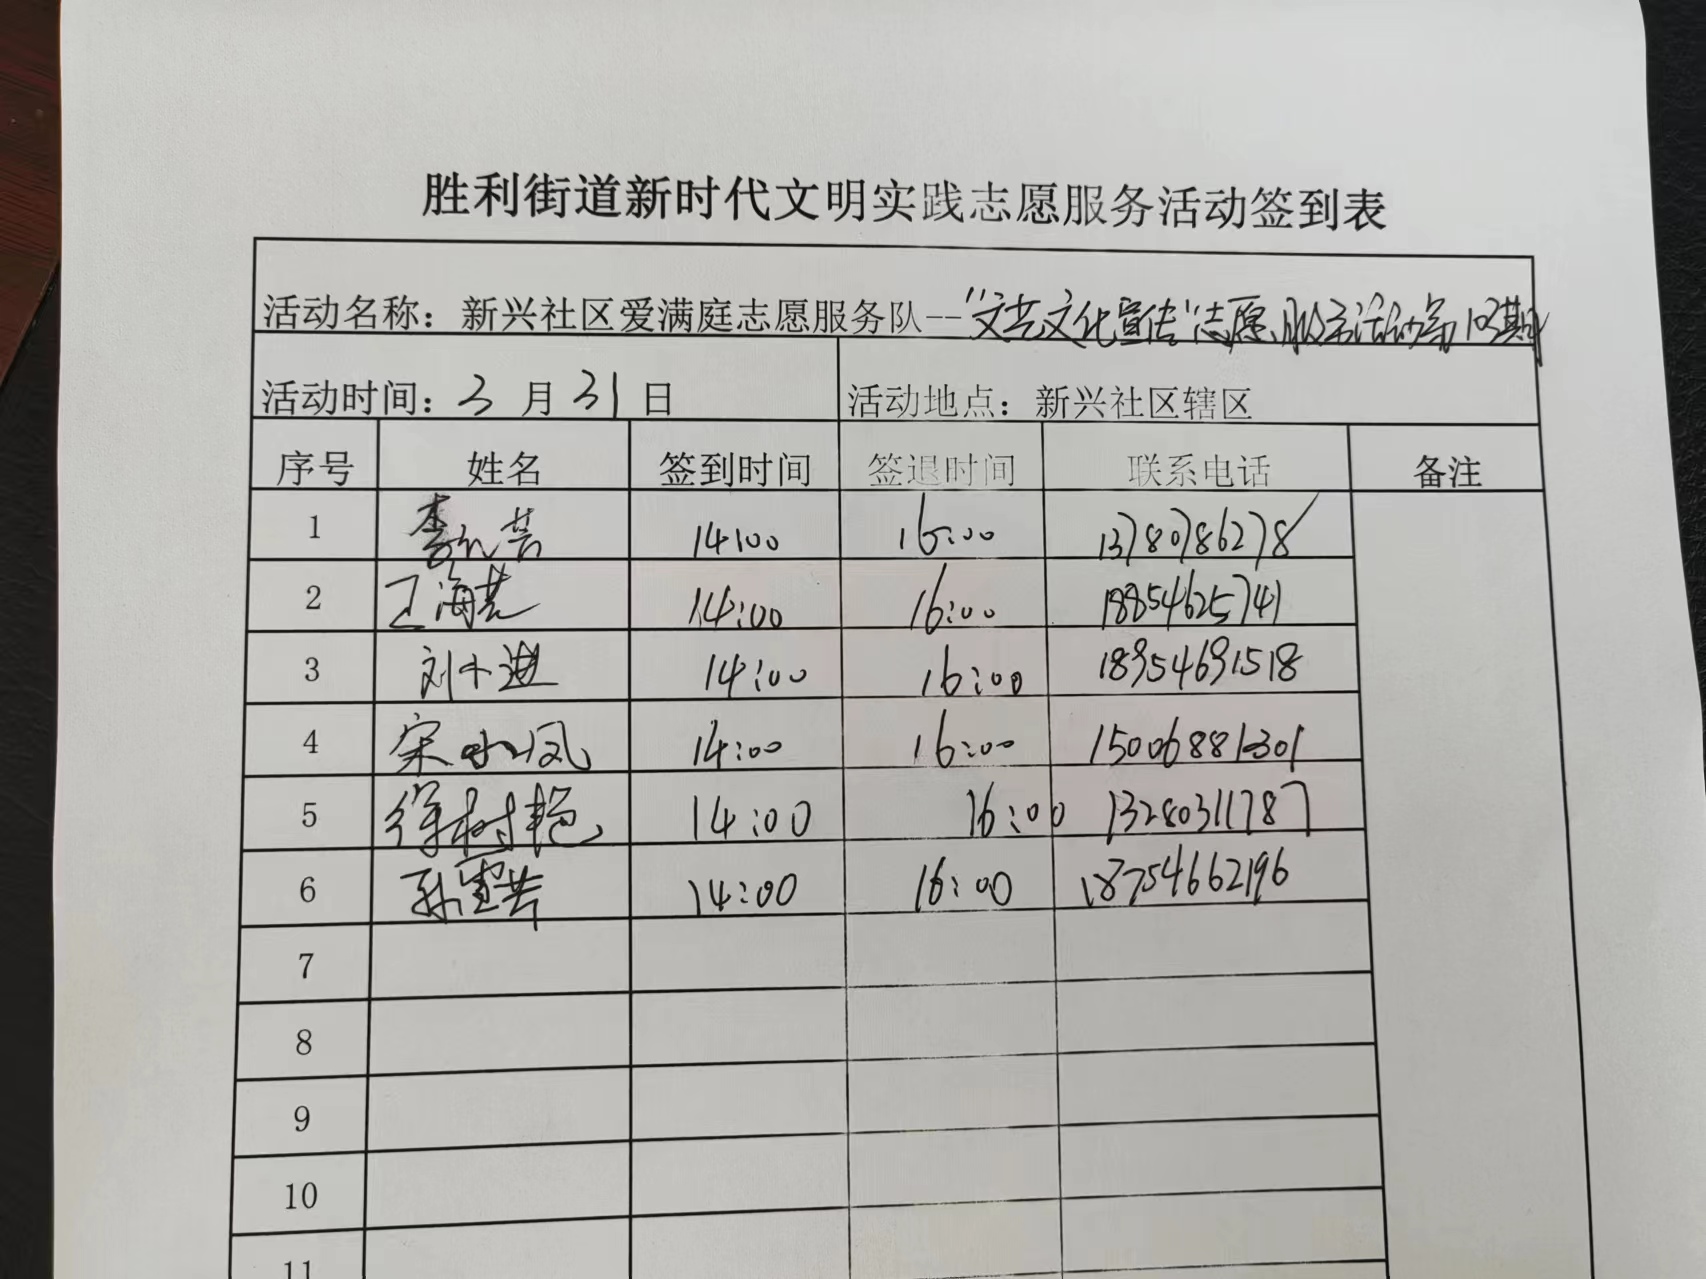 胜利街道新时代文明实践志愿服务活动签到表
活动名称：新兴社区爱满庭志愿服务队--“文艺文化宣传”志愿服务活动第 期
活动时间：3 月 31 日 活动地点：新兴社区辖区
序号 姓名 签到时间 签退时间 联系电话 备注
1 14:00 16:00 13780786278
2 王海芸 14:00 16:00 18854625741
3 刘小进 14:00 16:00 18954691518
4 宋水凤 14:00 16:00 15006881301
5 徐树艳 14:00 16:00 13280311787
6 14:00 16:00 18754662196
7
8
9
10
11